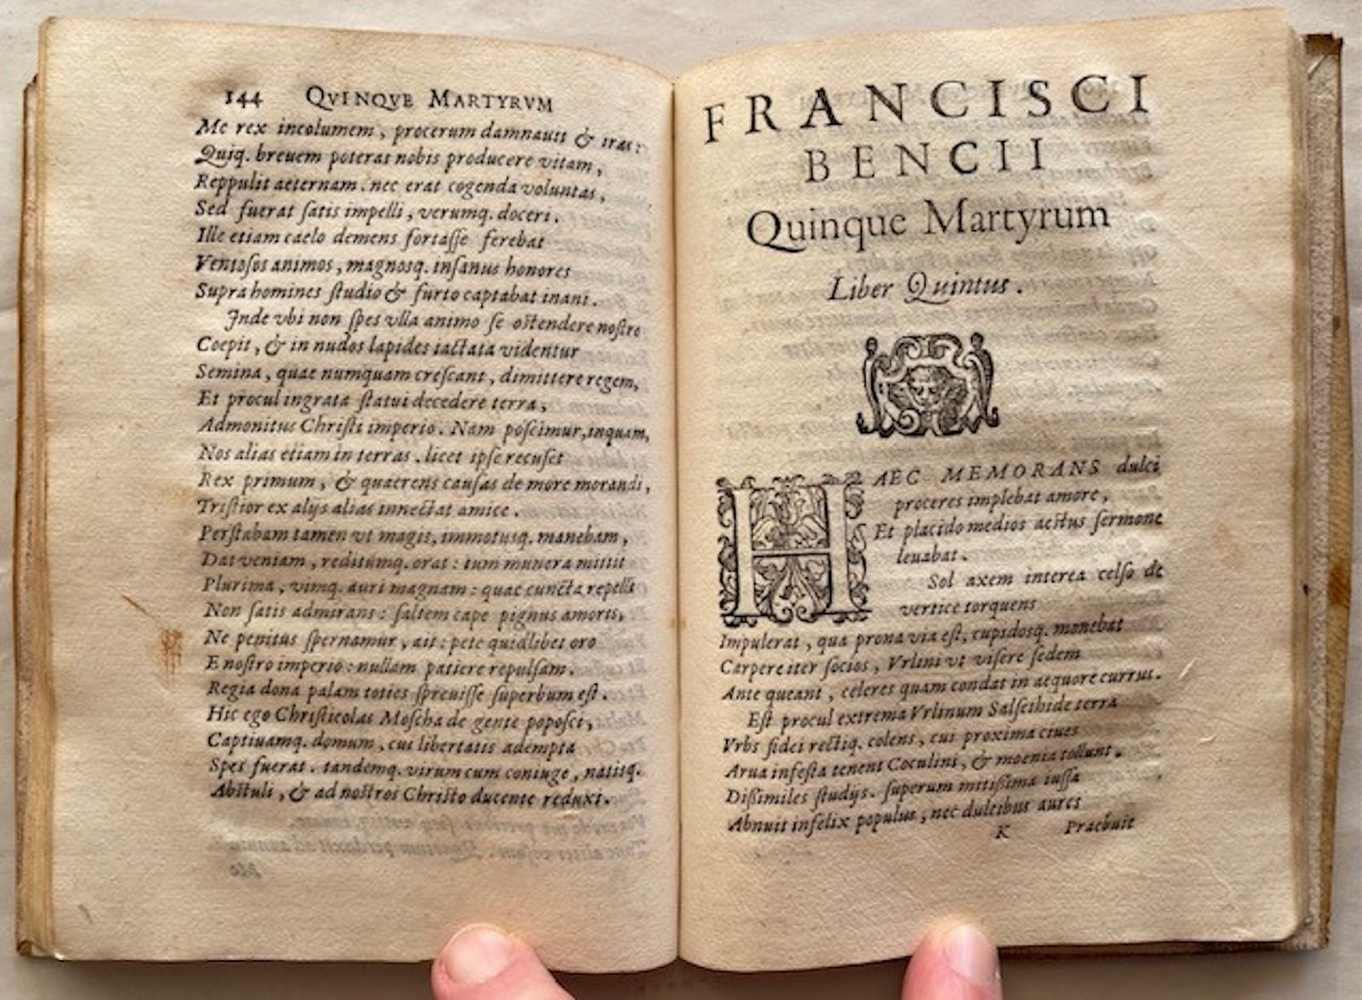 144 QVINQVE MARTYRVM
Me rex incolumem, procerum damnauit & iras:
Quiq. breuem poterat nobis producere vitam,
Reppulit aeternam. nec erat cogenda voluntas,
Sed fuerat satis impelli, verumq. doceri.
Ille etiam caelo demens fortasse ferebat
Ventosos animos, magnosq. insanus honores
Supra homines studio & furto captabat inani.
Inde vbi non spes vlla animo se ostendere nostro
Coepit, & in nudos lapides iactata videntur
Semina, quae numquam crescant, dimittere regem,
Et procul ingrata statui decedere terra,
Admonitus Christi imperio. Nam poscimur, inquam,
Nos alias etiam in terras. licet ipse recuset
Rex primum, & quaerens causas de more morandi,
Tristior ex alijs alias innectat amice.
Perstabam tamen vt magis, immotusq. manebam,
Dat veniam, reditumq. orat: tum munera mittit
Plurima, vimq. auri magnam: quae cuncta repelli
Non satis admirans: saltem cape pignus amoris,
Ne penitus spernamur, ait: pete quidlibet oro
E nostro imperio: nullam patiere repulsam.
Regia dona palam toties spreuisse superbum est.
Hic ego Christicolas Moscha de gente poposci,
Captiuamq. domum, cui libertatis adempta
Spes fuerat. tandemq. virum cum coniuge, natisq.
Abstuli, & ad nostros Christo ducente reduxi.
FRANCISCI
BENCII
Quinque Martyrum
Liber Quintus.
HAEC MEMORANS dulci
proceres implebat amore,
Et placido medios aestus sermone
leuabat.
Sol axem interea celso de
vertice torquens
Impulerat, qua prona via est, cupidosq. monebat
Carpere iter socios, Vrlini vt visere sedem
Ante queant, celeres quam condat in aequore currus.
Est procul extrema Vrlinum Salsethide terra
Vrbs fidei rectiq. colens, cui proxima ciues
Arua infesta tenent Coculini, & moenia tollunt.
Dissimiles studijs. superum mitissima iussa
Abnuit infelix populus, nec dulcibus aures
K Praebuit